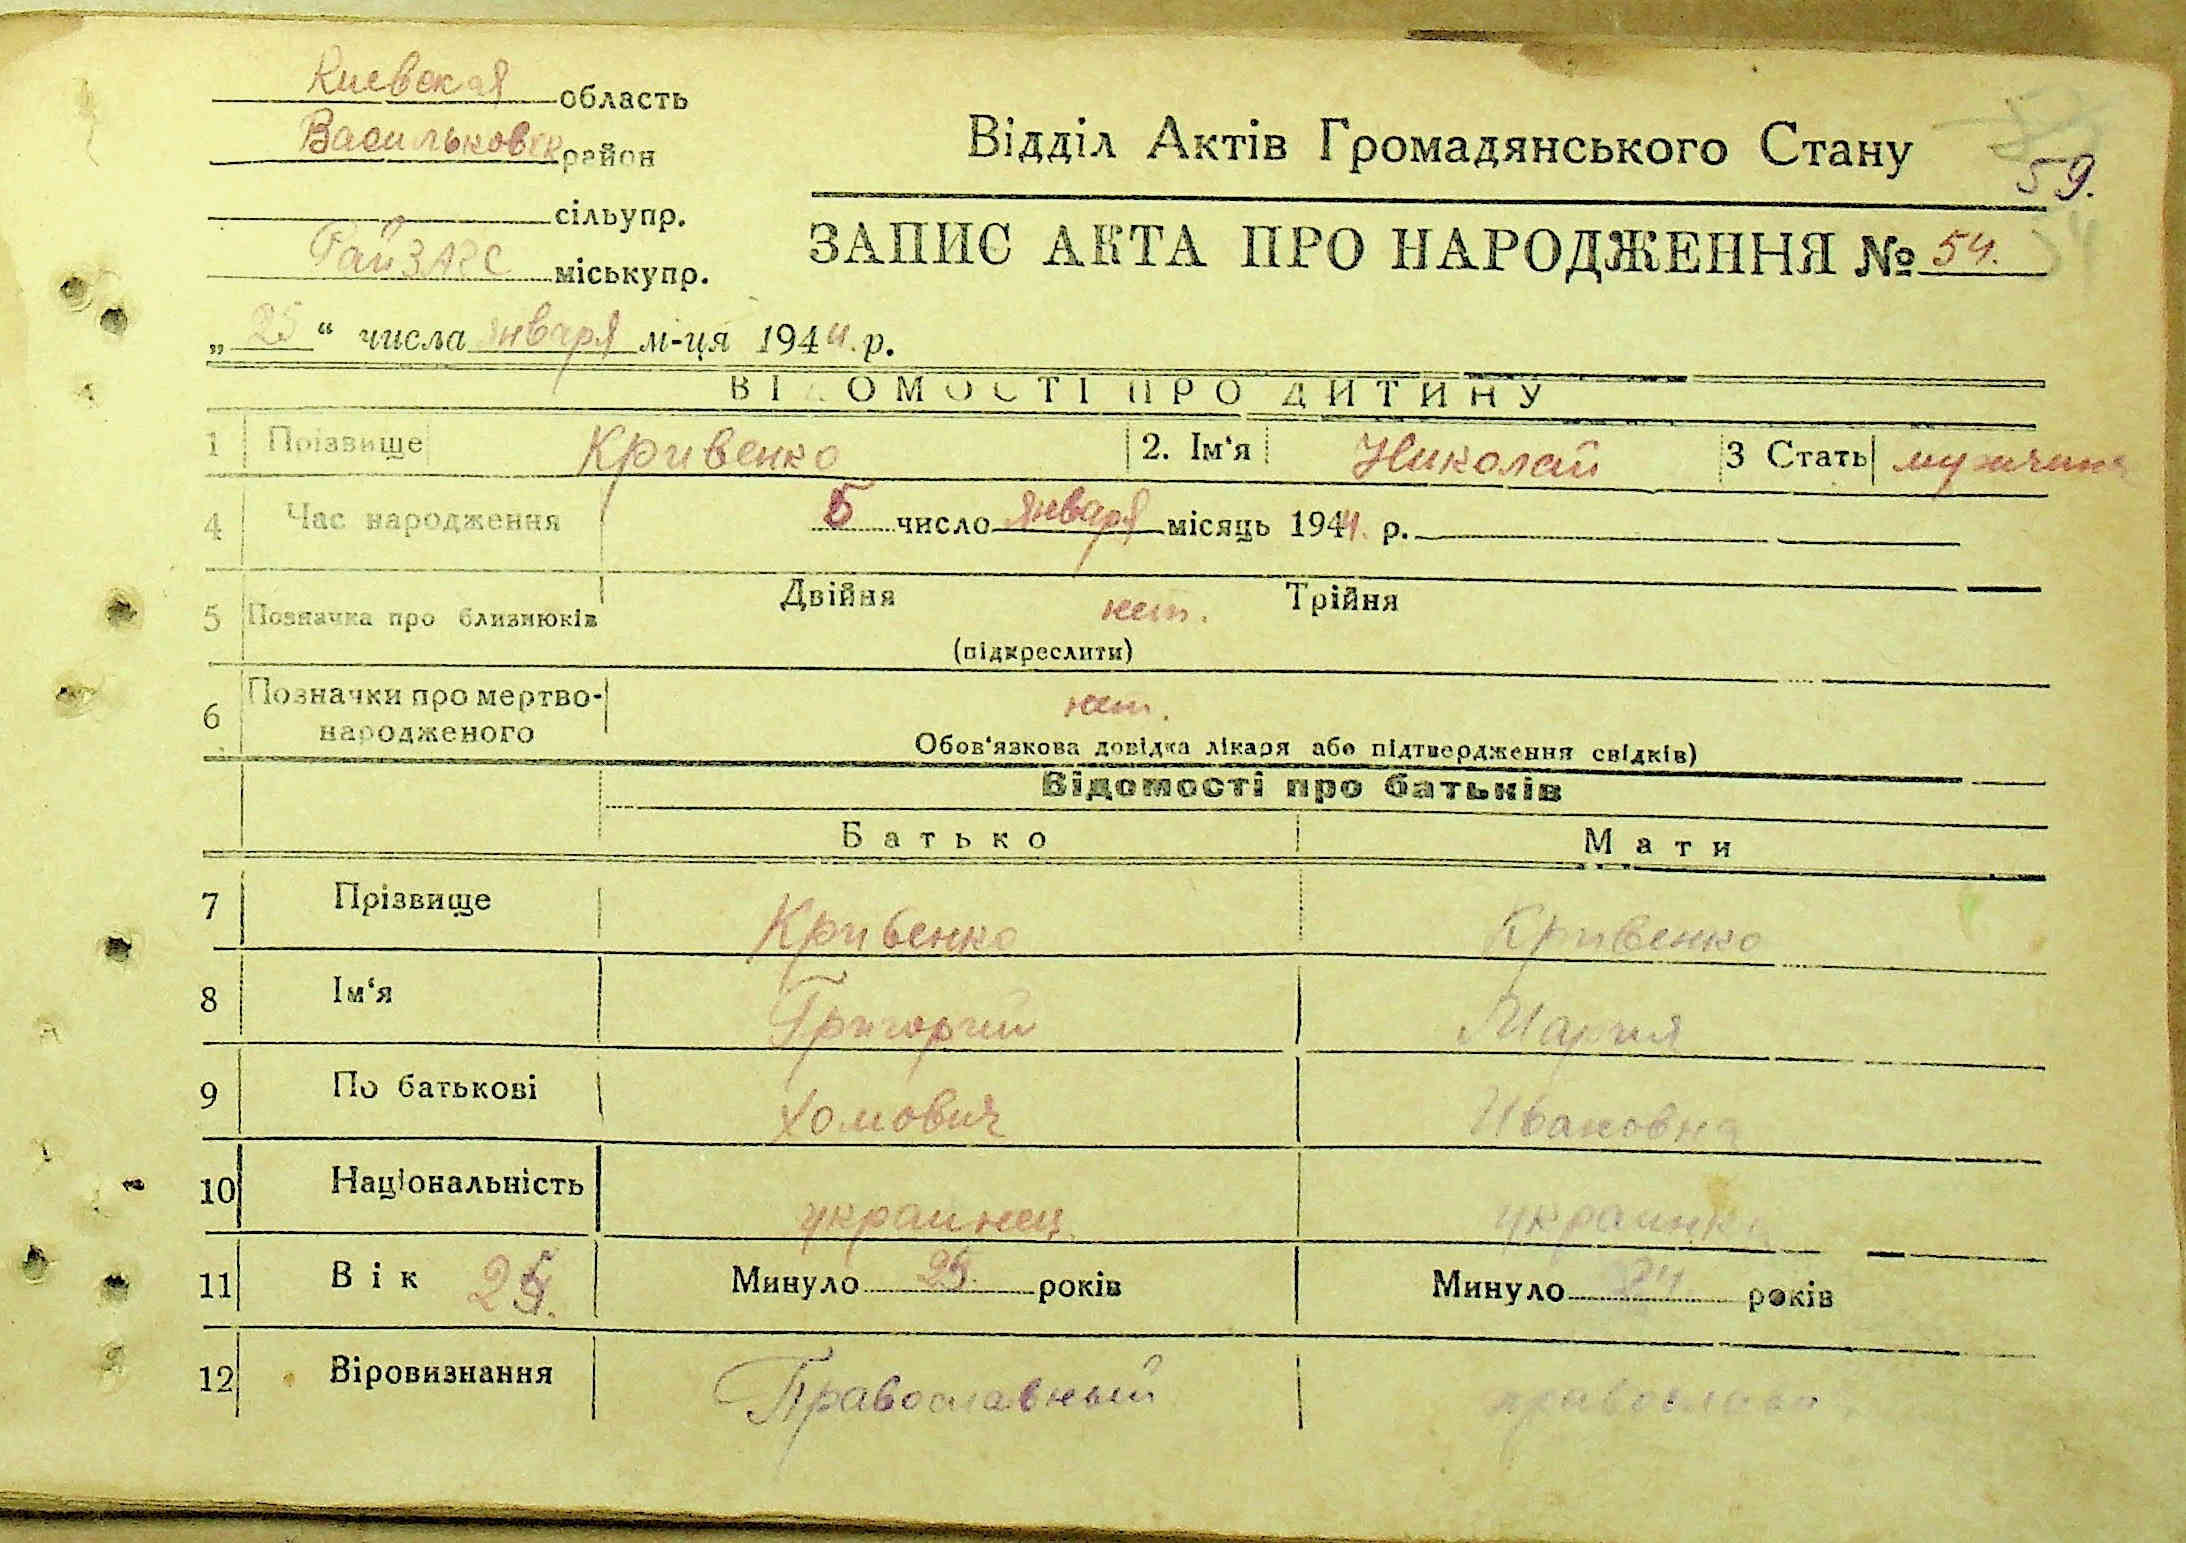 Киевская область
Васильковск район
сільупр.
РайЗАГС міськупр.
Відділ Актів Громадянського Стану
59.
ЗАПИС АКТА ПРО НАРОДЖЕННЯ № 54.
„25“ числа января м-ця 1944. р.
ВІДОМОСТІ ПРО ДИТИНУ
1 Прізвище Кривенко 2. Ім‘я Николай 3 Стать мужчина
4 Час народження 5 число января місяць 1944. р.
5 Позначка про близнюків Двійня нет. Трійня
(підкреслити)
6 Позначки про мертво-народженого нет.
Обов‘язкова довідка лікаря або підтвердження свідків)
Відомості про батьків
Батько Мати
7 Прізвище Кривенко Кривенко
8 Ім‘я Григорий Мария
9 По батькові Хомович Ивановна
10 Національність украинец украинка
11 Вік Минуло років Минуло років
12 Віровизнання Православный